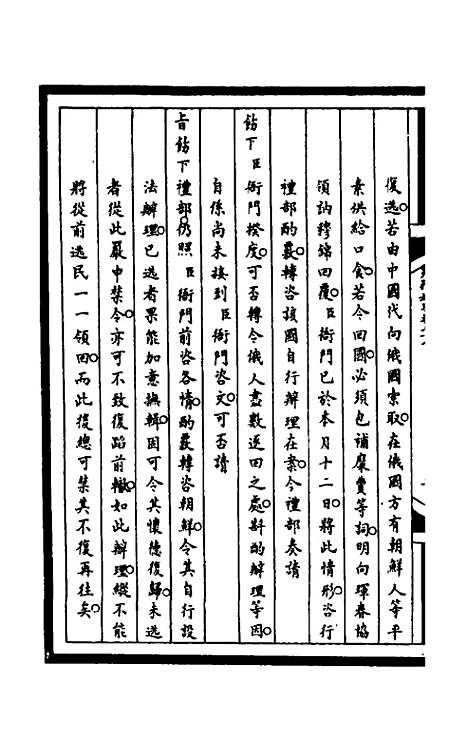 復逃若由中國代向俄國索取在俄國方有朝鮮人等平
素供給口食若令回國必須包補糜費等詞明向琿春協
領訥穆錦回覆臣衙門已於本月十二日將此情形咨行
禮部酌覈轉咨該國自行辦理在案今禮部奏請
飭下臣衙門揆度可否轉令俄人盡數逐回之處斟酌辦理等因
自係尚未接到臣衙門咨文可否請
旨飭下禮部仍照臣衙門前咨各情酌覈轉咨朝鮮令其自行設
法辦理已逃者果能加意撫輯固可令其懷德復歸未逃
者從此嚴申禁令亦可不致復蹈前轍如此辦理縱不能
將從前逃民一一領回而此後總可禁其不復再往矣